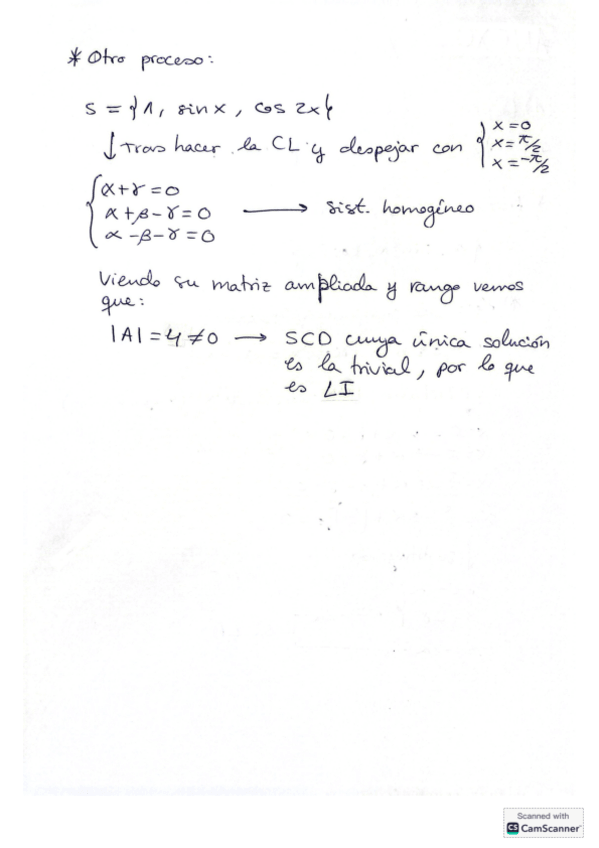 * Otro proceso:
S = {1, sin x, cos 2x}
↓ Tras hacer la CL y despejar con { x = 0
x = π/2
x = -π/2
{ α + γ = 0
α + β - γ = 0 → Sist. homogéneo
α - β - γ = 0
Viendo su matriz ampliada y rango vemos
que:
|A| = 4 ≠ 0 → SCD cuya única solución
es la trivial, por lo que
es LI
Scanned with
CS CamScanner